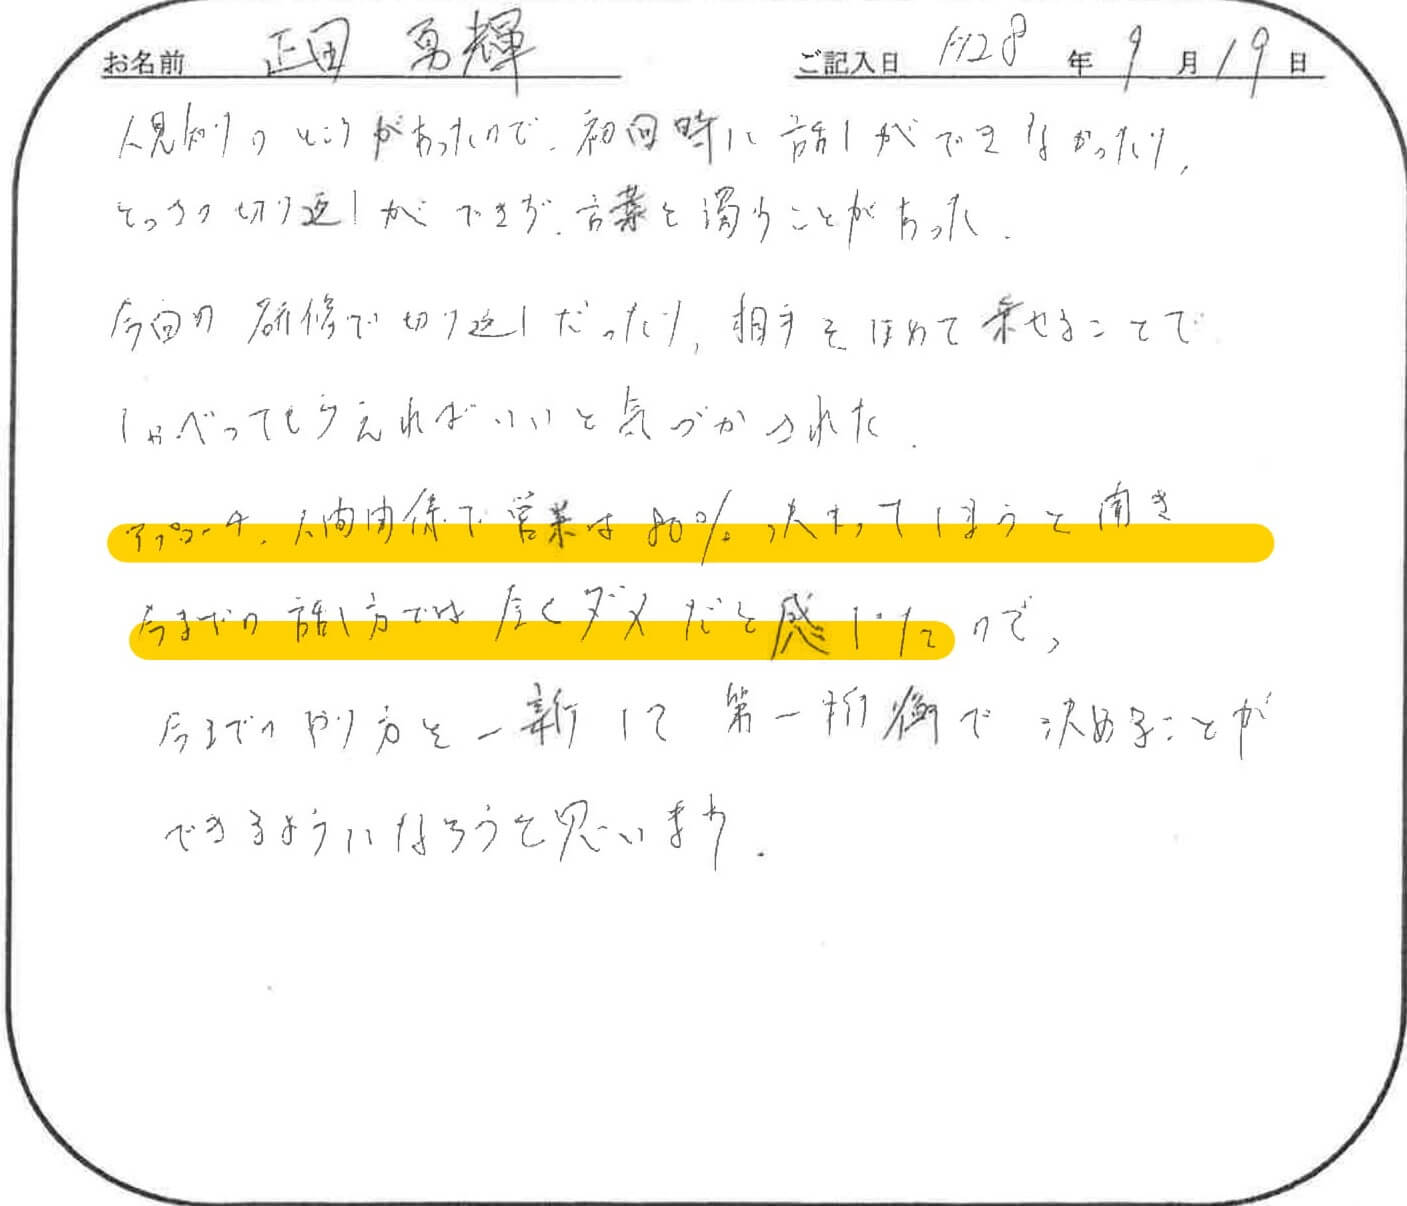 お名前 正田 勇輝 ご記入日 H28年9月19日
人見知りのところがあったので、初回時に話しができなかったり、
とっさの切り返しができず、言葉を濁すことがあった。
今回の研修で切り返しだったり、相手をほめて乗せることで
しゃべってもらえればいいと気づかされた。
アプローチ、人間関係で営業は80%決まってしまうと聞き
今までの話し方では全くダメだと感じたので、
今までのやり方を一新して第一折衝で決めることが
できるようになろうと思います。